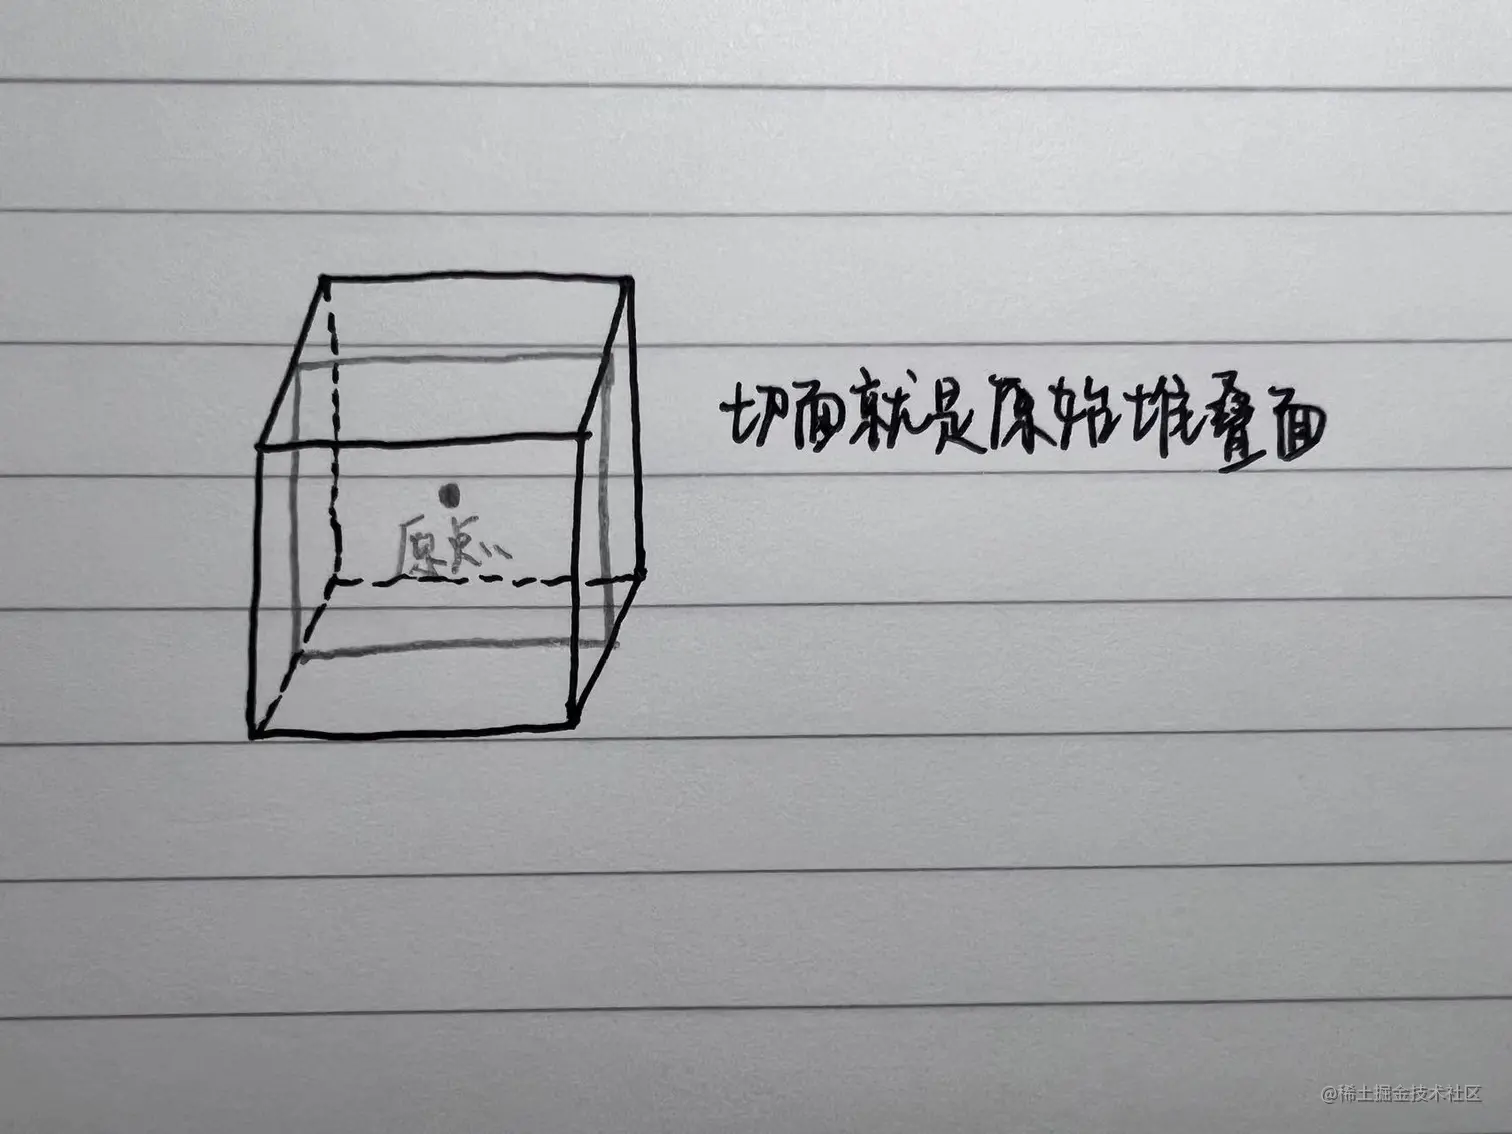 切面就是原始堆叠面
原点
@稀土掘金技术社区